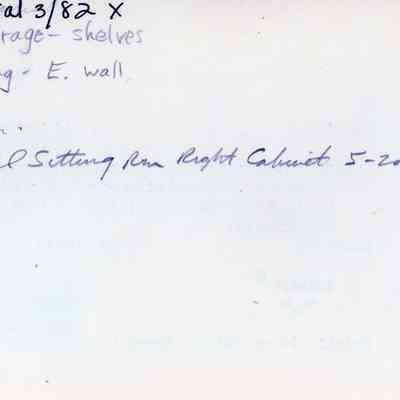 ial 3/82 X
rage - shelves
g - E. wall
l Sitting Rm Right Cabinet 5-20